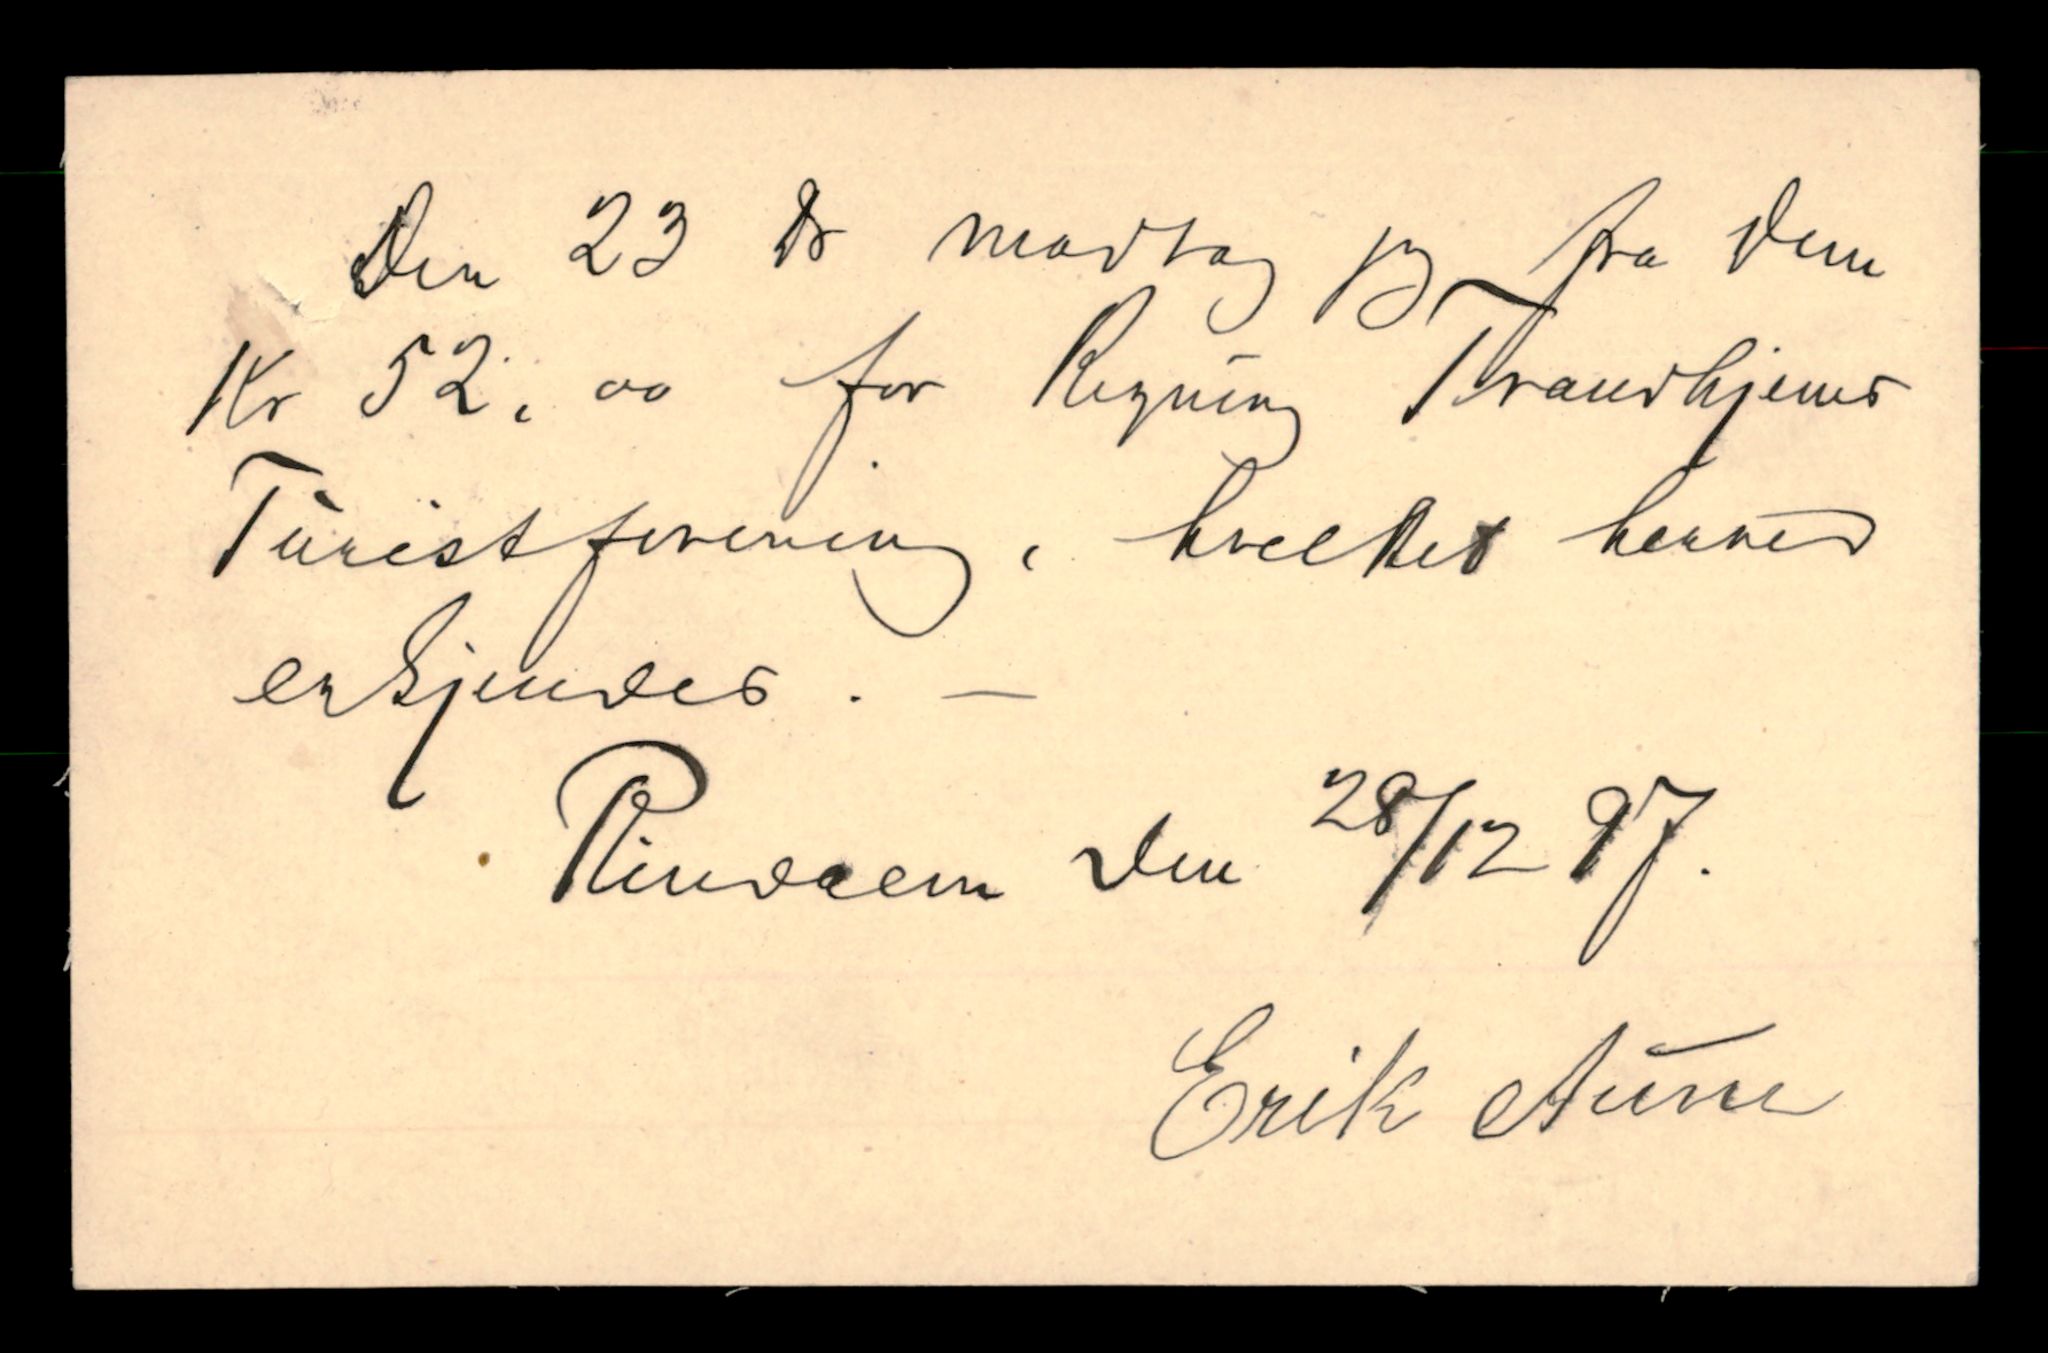 Den 23 ds modtog jeg fra Dem
Kr 52,00 for Regning Trondhjems
Turistforening, hvilket herved
erkjendes. —
Rindalen den 28/12 97.
Erik Aune